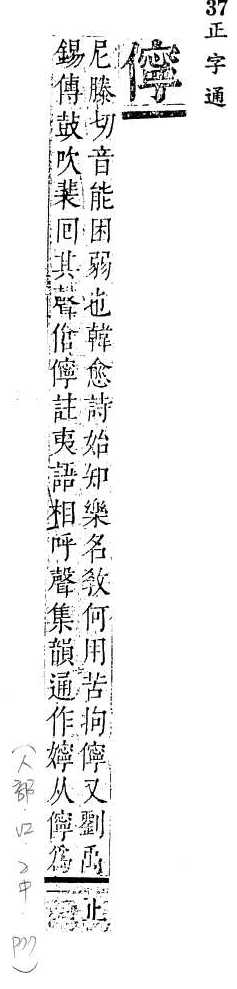 37 正字通
儜
尼滕切音能困弱也韓愈詩始知樂名教何用苦拘儜又劉禹
錫傳鼓吹裴回其聲傖儜註夷語相呼聲集韻通作嬣从儜爲
正
(人部 中 P77)